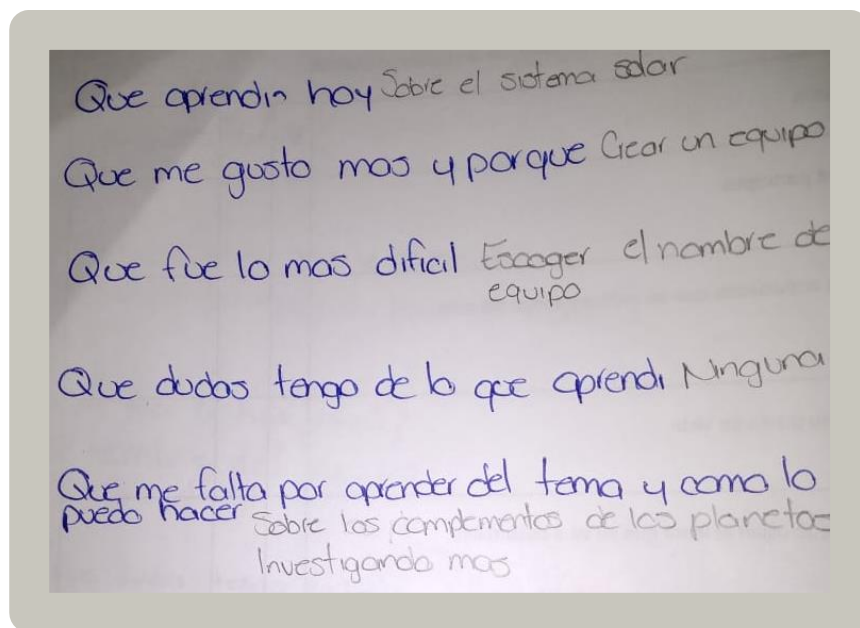 Que aprendin hoy Sobre el sistema solar
Que me gusto mas y porque Crear un equipo
Que fue lo mas dificil Escoger el nombre de
equipo
Que dudas tengo de lo que aprendi Ninguna
Que me falta por aprender del tema y como lo
puedo hacer Sobre los complementos de los planetas
Investigando mas